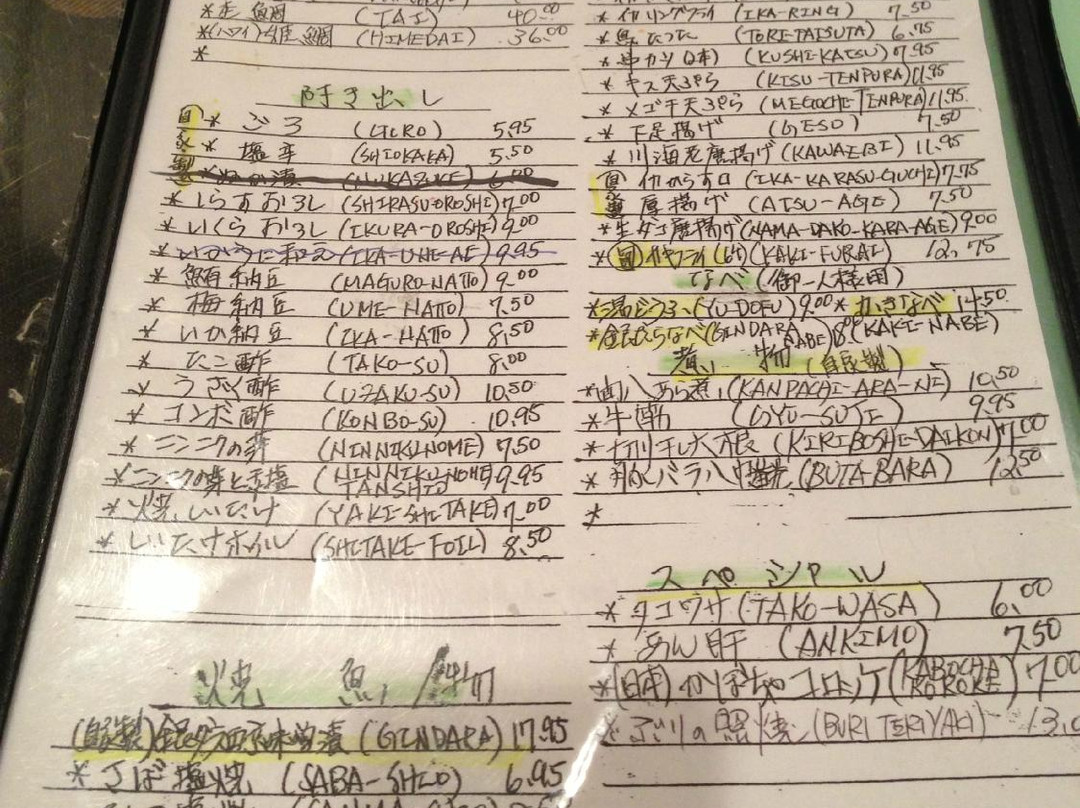 * 赤 鯛 (TAI) 40.00
*(ハワイ) 姫 鯛 (HIMEDAI) 36.00
*
附き出し
自 * ごろ (GORO) 5.95
家 * 塩辛 (SHIOKARA) 5.50
製 * ぬか漬 (NUKAZUKE) 6.00
* しらすおろし (SHIRASU-OROSHI) 7.00
* いくらおろし (IKURA-OROSHI) 9.00
* いかうに和え (IKA-UNI-AE) 9.95
* 鮪納豆 (MAGURO-NATTO) 9.00
* 梅納豆 (UME-NATTO) 7.50
* いか納豆 (IKA-NATTO) 8.50
* たこ酢 (TAKO-SU) 8.00
* うざく酢 (UZAKU-SU) 10.50
* コンボ酢 (KONBO-SU) 10.95
* ニンニクの芽 (NINNIKUNOME) 7.50
* ニンニクの芽と牛塩 (NINNIKUNOME TANSHIO) 9.95
* 焼しいたけ (YAKI-SHITAKE) 7.00
* しいたけホイル (SHITAKE-FOIL) 8.50
焼 魚/物
(自家製) 銀ダラ西京味噌漬 (GINDARA) 17.95
* さば塩焼 (SABA-SHIO) 6.95
* イカリングフライ (IKA-RING) 7.50
* 鳥たつた (TORI-TATSUTA) 6.75
* 串カツ(2本) (KUSHI-KATSU) 7.95
* キス天ぷら (KISU-TENPURA) 11.95
* メゴチ天ぷら (MEGOCHI-TENPURA) 11.95
* 下足揚げ (GESO) 7.50
* 川海老唐揚げ (KAWAEBI) 11.95
自 イカからす口 (IKA-KARASU-GUCHI) 7.75
厚揚げ (ATSU-AGE) 7.50
* 生ダコ唐揚げ (NAMA-DAKO-KARA-AGE) 9.00
* 自 カキフライ (KAKI-FURAI) 12.75
なべ (御一人様用)
* 湯どうふ (YU-DOFU) 9.00 * かきなべ 14.50
* 銀だらなべ (GINDARA NABE) (KAKI-NABE)
煮 物 (自家製)
* 間八あら煮 (KANPACHI-ARA-NI) 10.50
* 牛筋 (GYU-SUJI) 9.95
* 切り干し大根 (KIRI-BOSHI-DAIKON) 7.00
* 豚バラ (BUTA-BARA) 12.50
*
スペシャル
* タコワサ (TAKO-WASA) 6.00
* あん肝 (ANKIMO) 7.50
* (日本) かぼちゃコロッケ (KABOCHA KOROKE) 7.00
* ぶりの照焼 (BURI TERIYAKI) 13.0